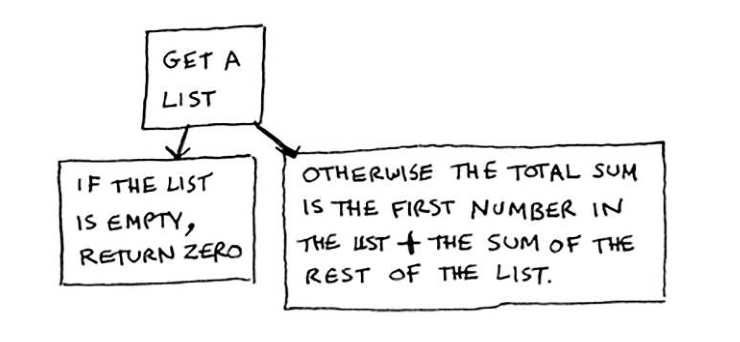 GET A
LIST
IF THE LIST
IS EMPTY,
RETURN ZERO
OTHERWISE THE TOTAL SUM
IS THE FIRST NUMBER IN
THE LIST + THE SUM OF THE
REST OF THE LIST.